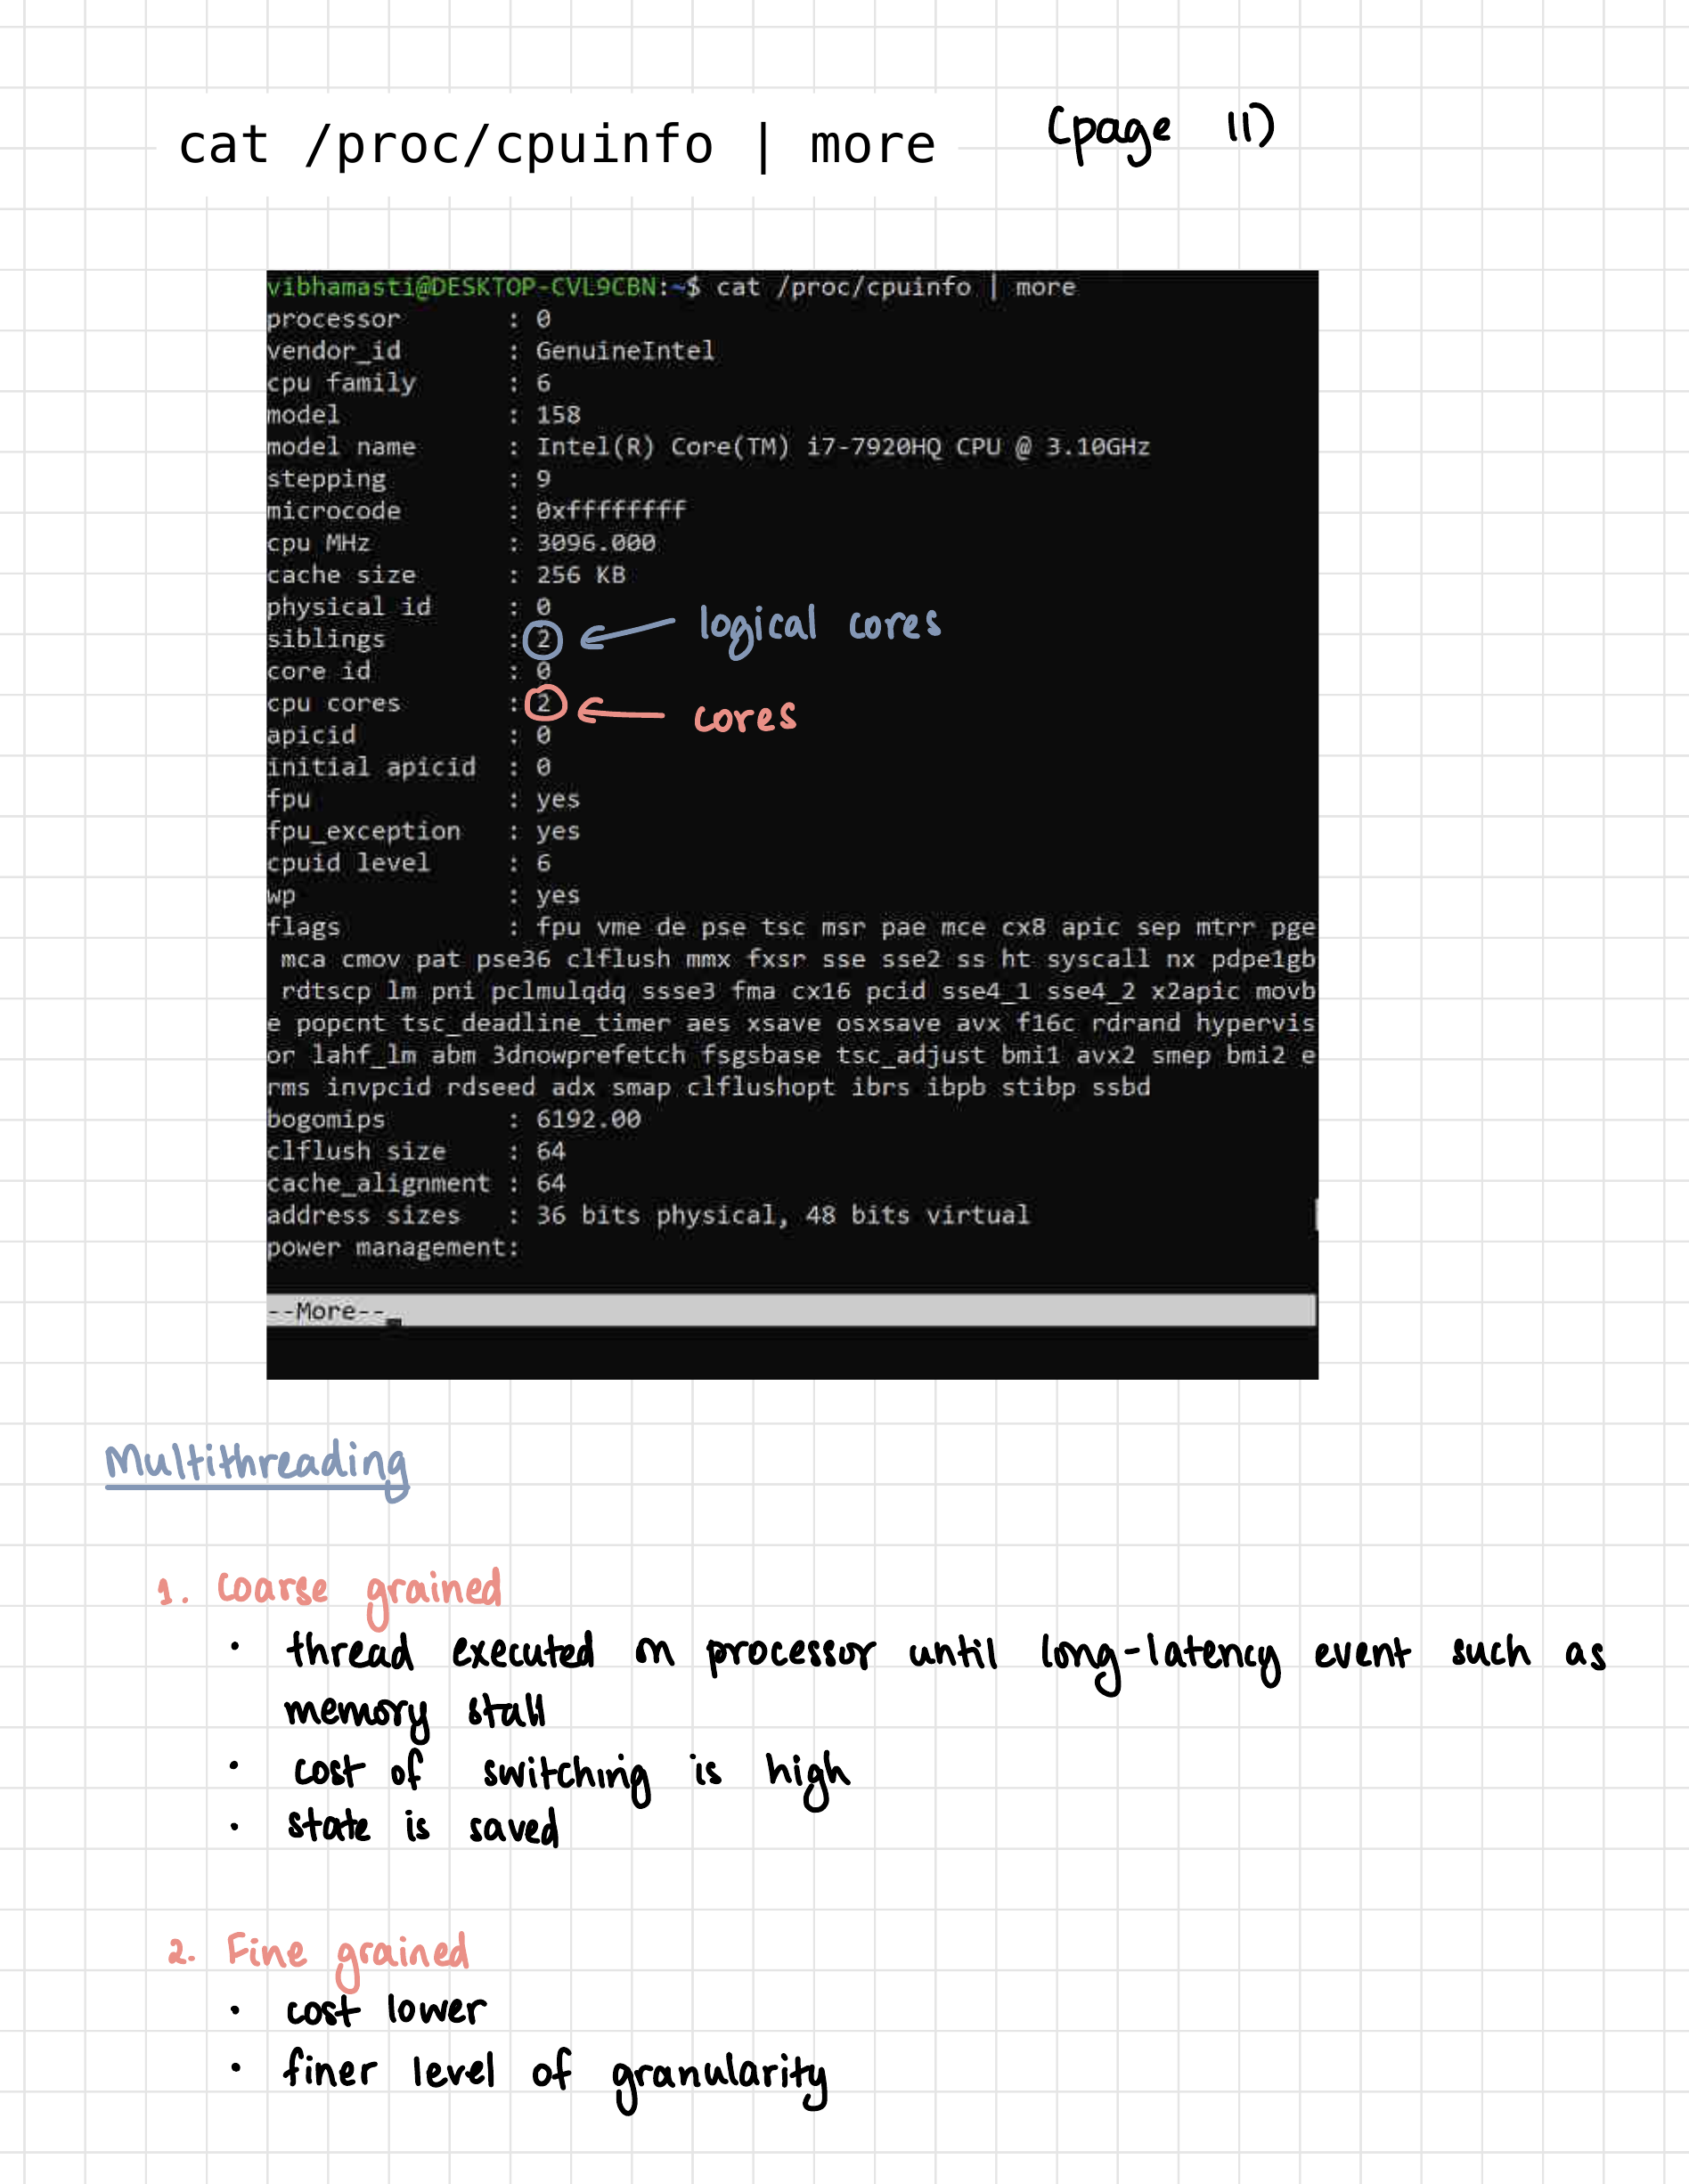 cat /proc/cpuinfo | more (page 11)
vibhamasti@DESKTOP-CVL9CBN:~$ cat /proc/cpuinfo | more
processor : 0
vendor_id : GenuineIntel
cpu family : 6
model : 158
model name : Intel(R) Core(TM) i7-7920HQ CPU @ 3.10GHz
stepping : 9
microcode : 0xffffffff
cpu MHz : 3096.000
cache size : 256 KB
physical id : 0
siblings : 2 logical cores
core id : 0
cpu cores : 2 cores
apicid : 0
initial apicid : 0
fpu : yes
fpu_exception : yes
cpuid level : 6
wp : yes
flags : fpu vme de pse tsc msr pae mce cx8 apic sep mtrr pge
mca cmov pat pse36 clflush mmx fxsr sse sse2 ss ht syscall nx pdpe1gb
rdtscp lm pni pclmulqdq ssse3 fma cx16 pcid sse4_1 sse4_2 x2apic movb
e popcnt tsc_deadline_timer aes xsave osxsave avx f16c rdrand hypervis
or lahf_lm abm 3dnowprefetch fsgsbase tsc_adjust bmi1 avx2 smep bmi2 e
rms invpcid rdseed adx smap clflushopt ibrs ibpb stibp ssbd
bogomips : 6192.00
clflush size : 64
cache_alignment : 64
address sizes : 36 bits physical, 48 bits virtual
power management:
--More--
Multithreading
1. Coarse grained
• thread executed on processor until long-latency event such as
memory stall
• cost of switching is high
• state is saved
2. Fine grained
• cost lower
• finer level of granularity